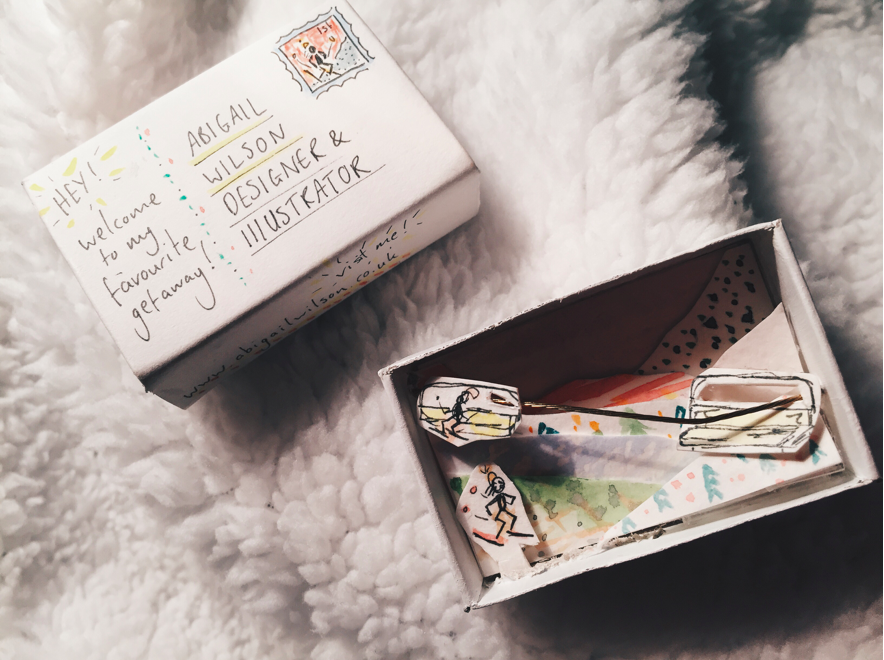 HEY!
welcome
to my
favourite
getaway!
ABIGAIL
WILSON
DESIGNER &
IllUSTRATOR
visit me!
www.abigailwilson.co.uk